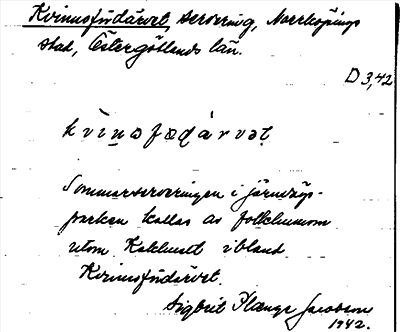 Kvinnsfördärvet, servering, Norrköpings
stad, Östergötlands län.
D 3,42
Sommarserveringen i järnvägs-
parken kallas av folkhumorn
utom Kalhuset ibland
Kvinnsfördärvet.
Sigbrit Plænge Jacobson
1942.